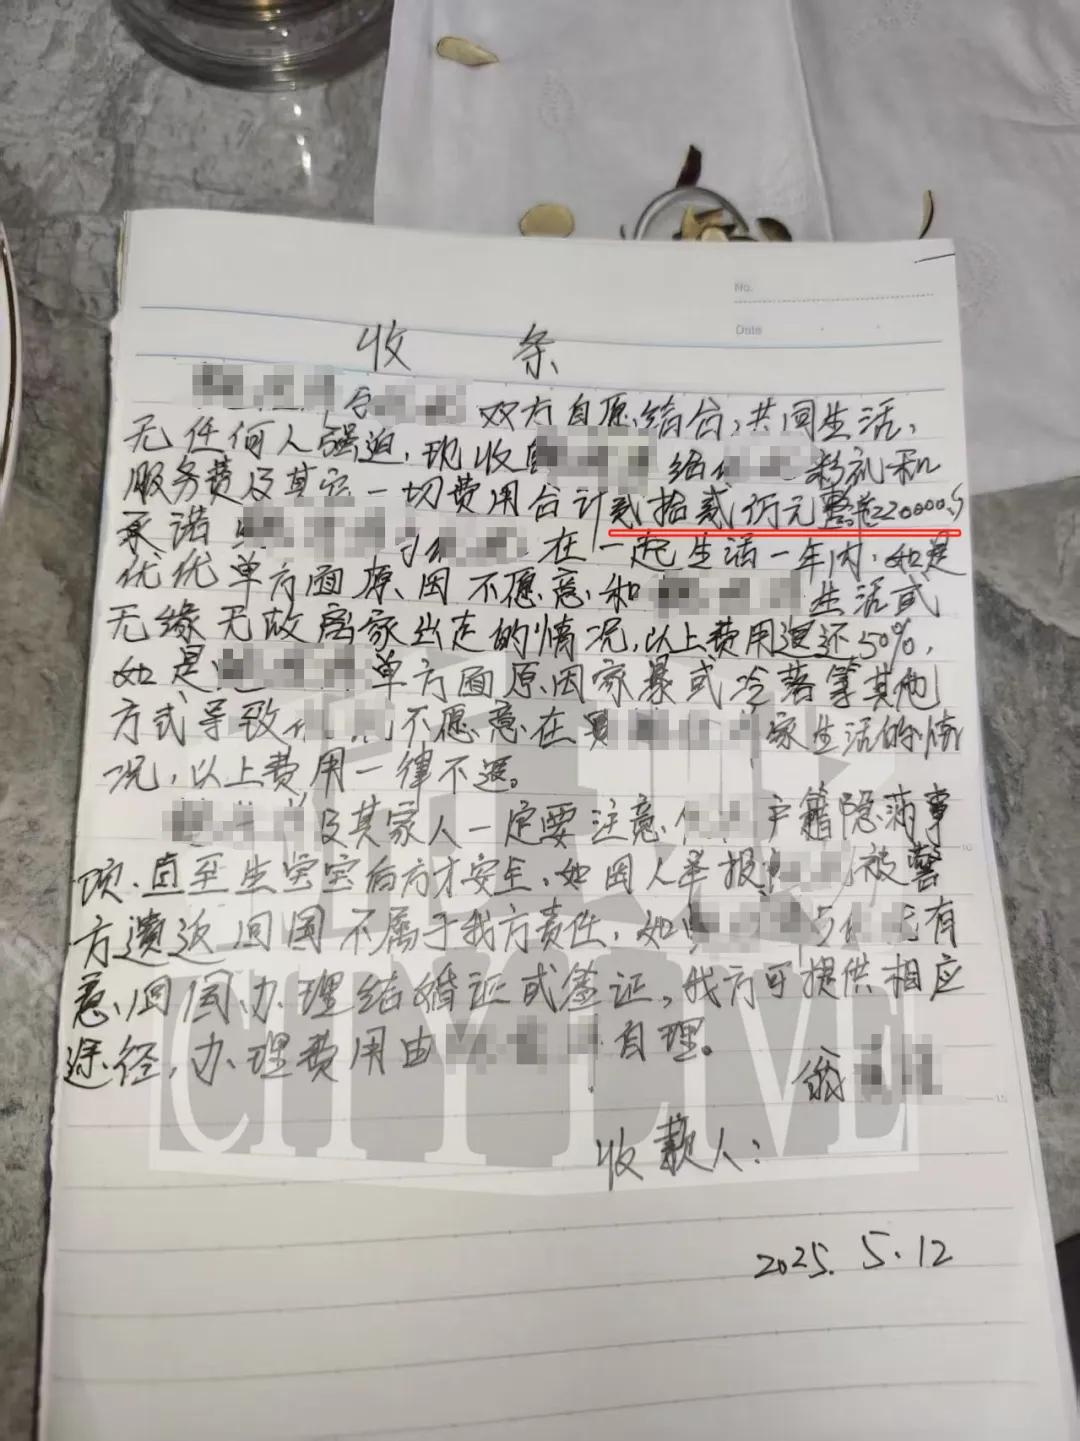 No.
Date
收 条
双方自愿结合,共同生活,
无任何人强迫,现收 给 彩礼和
服务费及其它一切费用合计贰拾贰仟元整220000
承诺 在一起生活一年内,如是
优优单方面原因不愿意和 生活或
无缘无故离家出走的情况,以上费用退还50%,
如是 单方面原因家暴或冷落等其他
方式导致 不愿意在 家生活的情
况,以上费用一律不退。
及其家人一定要注意 户籍隐 事
项,直至生宝宝后方才安全,如因人举报 被警
方遣返回国不属于我方责任,如 有
意回国办理结婚证或签证,我方可提供相应
途径,办理费用由 自理。
翁
收款人:
2025.5.12
CITY LIVE